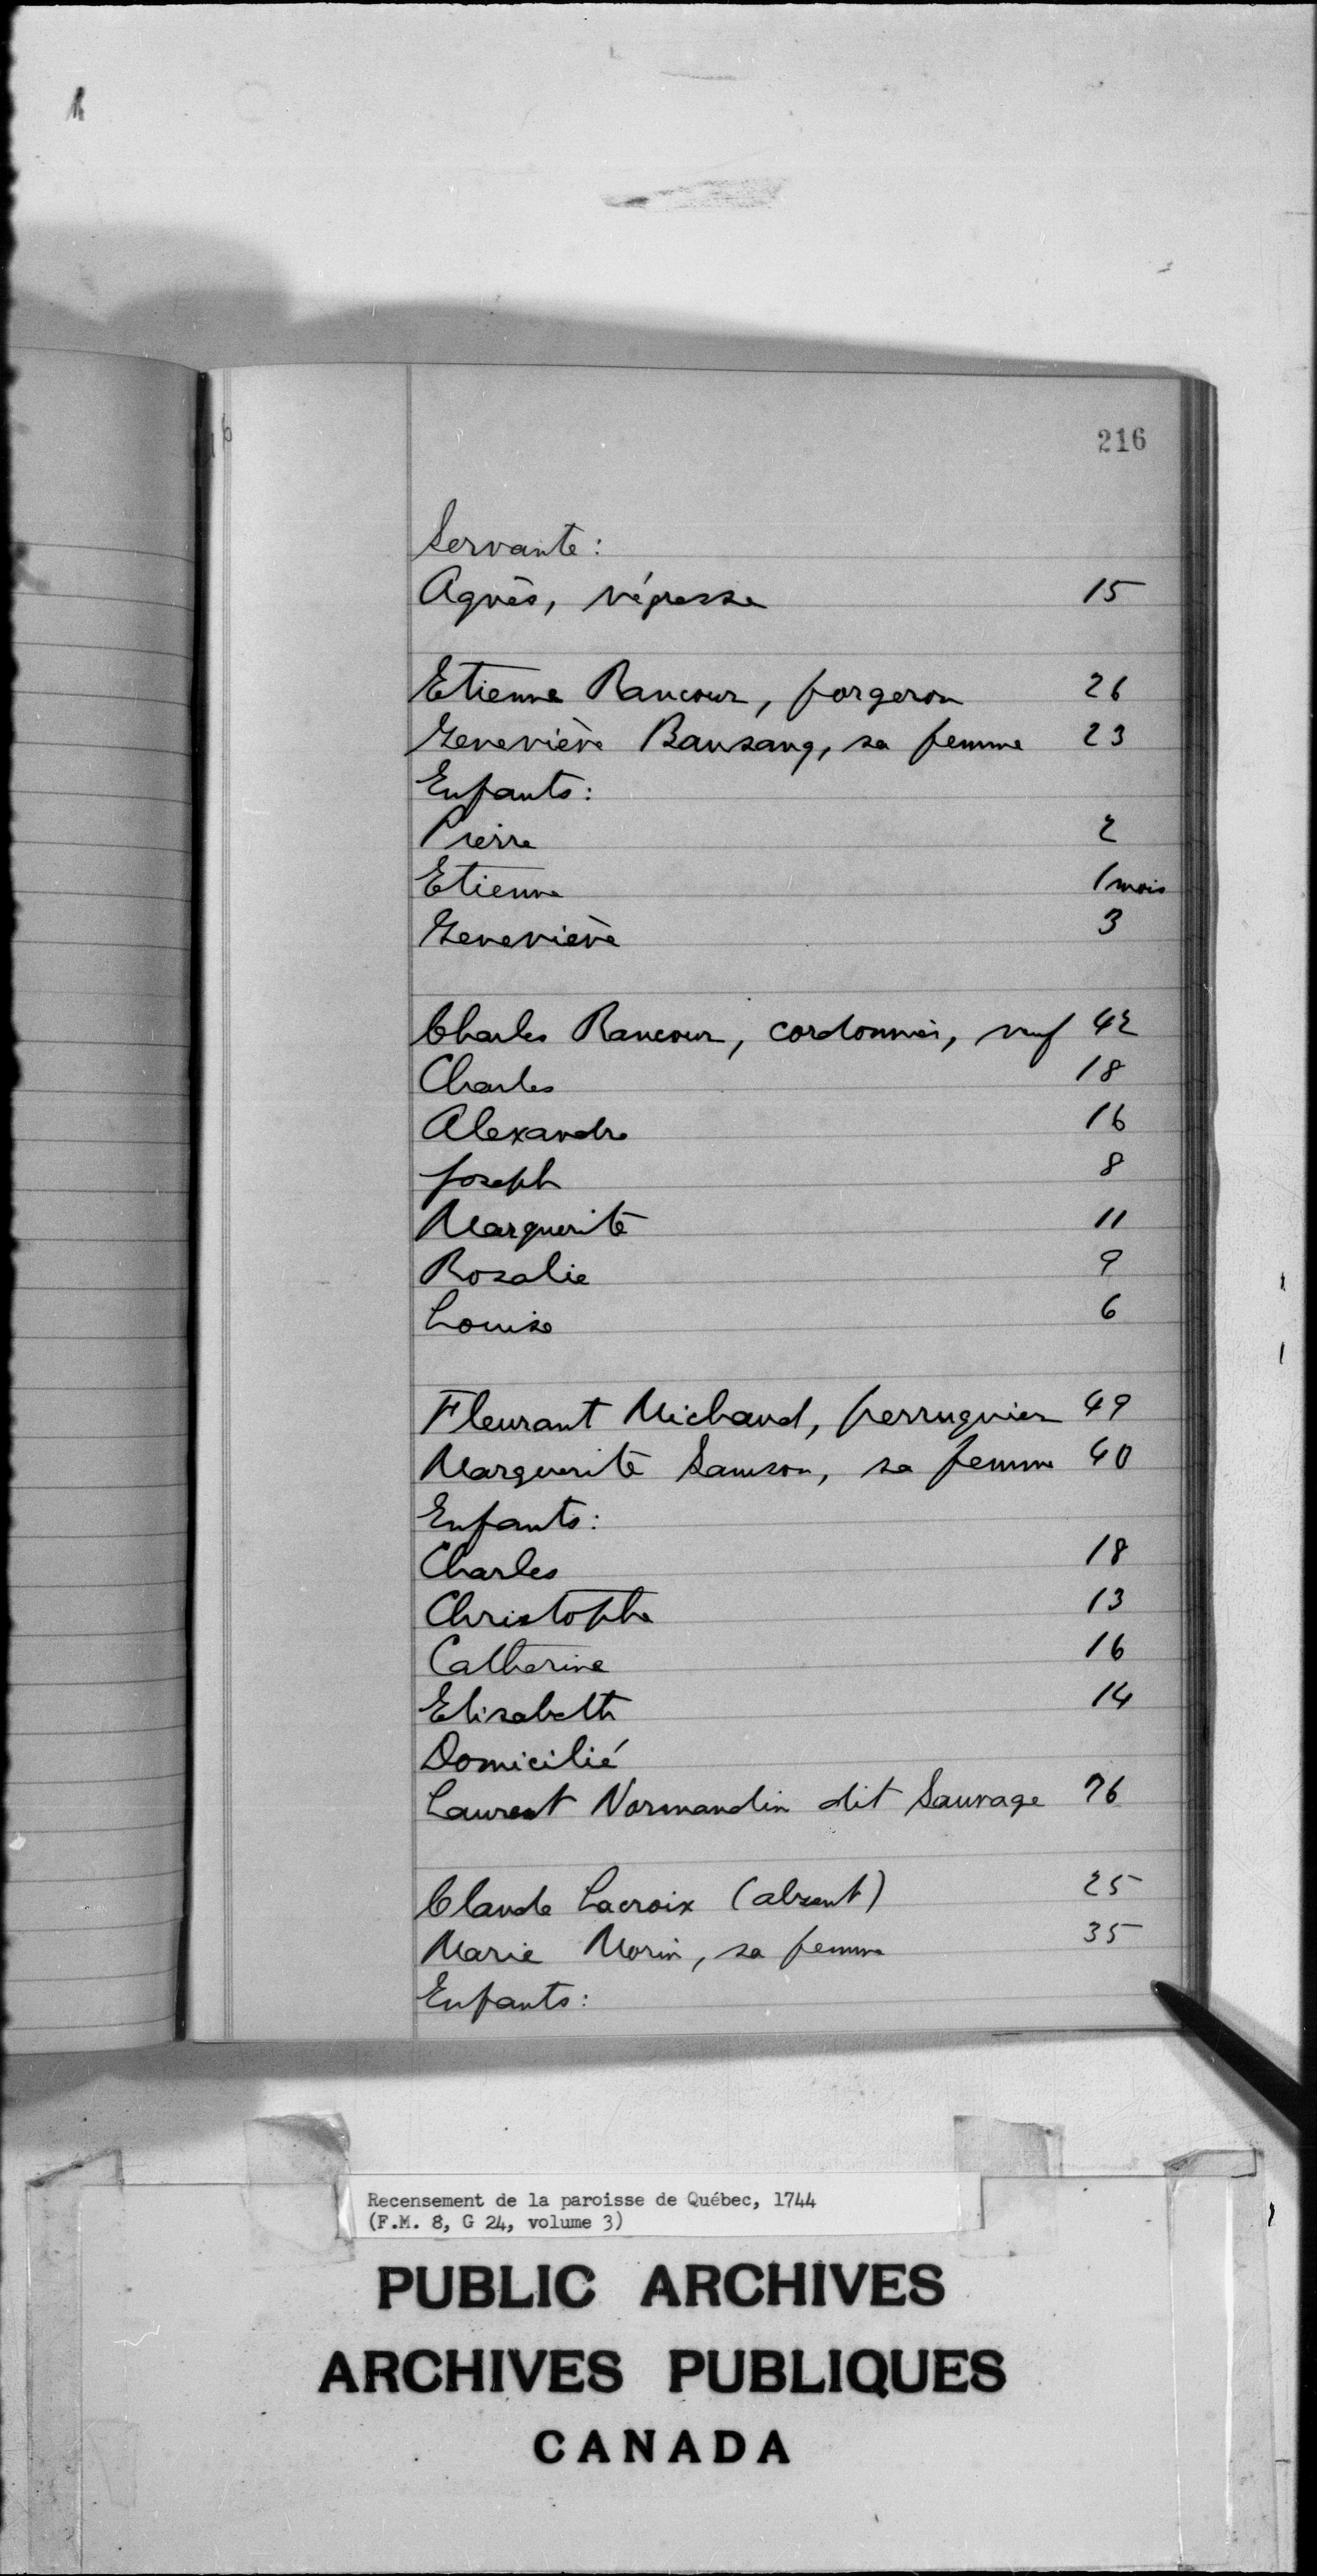 216
Servante:
Agnès, négresse 15
Etienne Rancour, forgeron 26
Geneviève Bansang, sa femme 23
Enfants:
Pierre 2
Etienne 1 mois
Geneviève 3
Charles Rancour, cordonnier, veuf 42
Charles 18
Alexandre 16
Joseph 8
Marguerite 11
Rosalie 9
Louise 6
Fleurant Michaud, perruquier 49
Marguerite Samson, sa femme 40
Enfants:
Charles 18
Christophe 13
Catherine 16
Elisabeth 14
Domicilié
Laurent Normandin dit Sauvage 76
Claude Lacroix (absent) 25
Marie Morin, sa femme 35
Enfants:
Recensement de la paroisse de Québec, 1744
(F.M. 8, G 24, volume 3)
PUBLIC ARCHIVES
ARCHIVES PUBLIQUES
CANADA